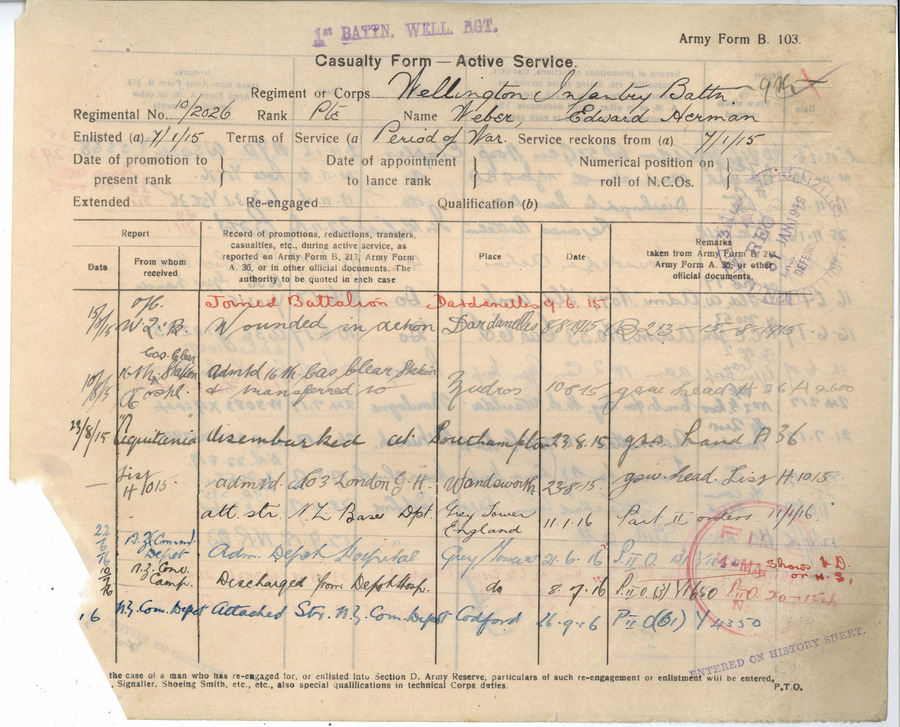 1st BATTN. WELL. RGT.
Army Form B. 103.
Casualty Form — Active Service.
Regiment or Corps Wellington Infantry Battn
Regimental No. 10/2026 Rank Pte Name Weber, Edward Herman
Enlisted (a) 7/1/15 Terms of Service (a Period of War. Service reckons from (a) 7/1/15
Date of promotion to present rank } Date of appointment to lance rank } Numerical position on roll of N.C.Os. }
Extended Re-engaged Qualification (b)
Report
Date
From whom received
Record of promotions, reductions, transfers, casualties, etc., during active service, as reported on Army Form B. 213, Army Form A. 36, or in other official documents. The authority to be quoted in each case
Place
Date
Remarks
taken from Army Form B. 213, Army Form A. 36, or other official documents.
Joined Battalion Dardanelles 9.6.15
Wounded in action Dardanelles 8/8/15 B 213
10/8/15 16th Cas. Clear. Station admtd 16th Cas Clear Station & transferred to Mudros 10.8.15 gsw head A 36
23/8/15 "Aquitania disembarked at Southampton 23.8.15 gsw hand A 36
— List H1015. admtd. No 3 London G.H. Wandsworth 23.8.15. gsw. head. List H 1015.
att. str. N Z Base Dpt. Grey Tower England 11.1.16 Part II orders 11/1/16
22/6/16 N.Z. Comd Depot Adm. Depot Hospital Grey Towers 21.6.16 P.II O.
10/7/16 N.Z. Conv. Camp. Discharged from Depot Hosp. do 8.7.16 P.II O. (3)
16 N.Z. Com. Depot Attached Str. N.Z. Com. Depot Codford 26.9.16 P II O (31) Y 4350
ENTERED ON HISTORY SHEET.
the case of a man who has re-engaged for, or enlisted into Section D. Army Reserve, particulars of such re-engagement or enlistment will be entered,
, Signaller, Shoeing Smith, etc., etc., also special qualifications in technical Corps duties.
P.T.O.